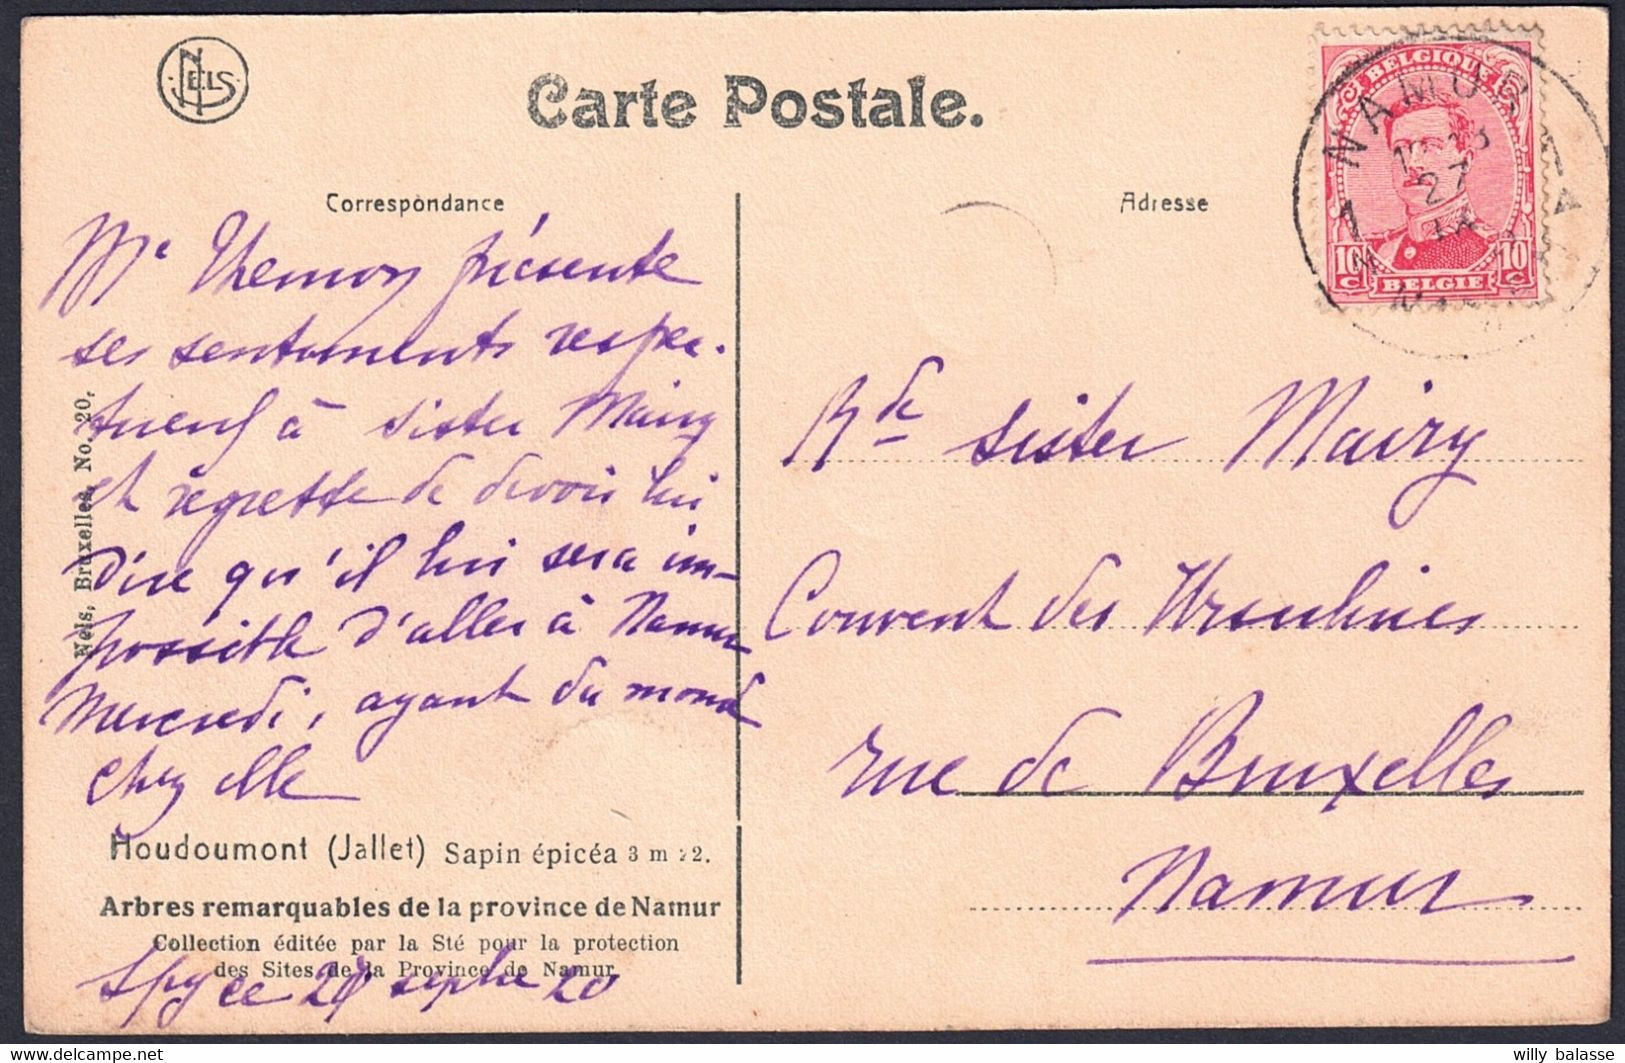 NELS
Carte Postale.
BELGIQUE
NAMUR
1
27
10 C
10 C
BELGIE
Correspondance
Adresse
Me Themon présente
ses sentiments respec-
tueux à sister Mairy
et regrette de devoir lui
dire qu'il lui sera im-
possible d'aller à Namur
Mercredi, ayant du monde
chez elle
Nels, Bruxelles, No. 20.
Rde sister Mairy
Couvent des Ursulines
rue de Bruxelles
Namur
Houdoumont (Jallet) Sapin épicéa 3 m 22.
Arbres remarquables de la province de Namur
Collection éditée par la Sté pour la protection
des Sites de la Province de Namur
Spy ce 27 septbre 20
willy balasse